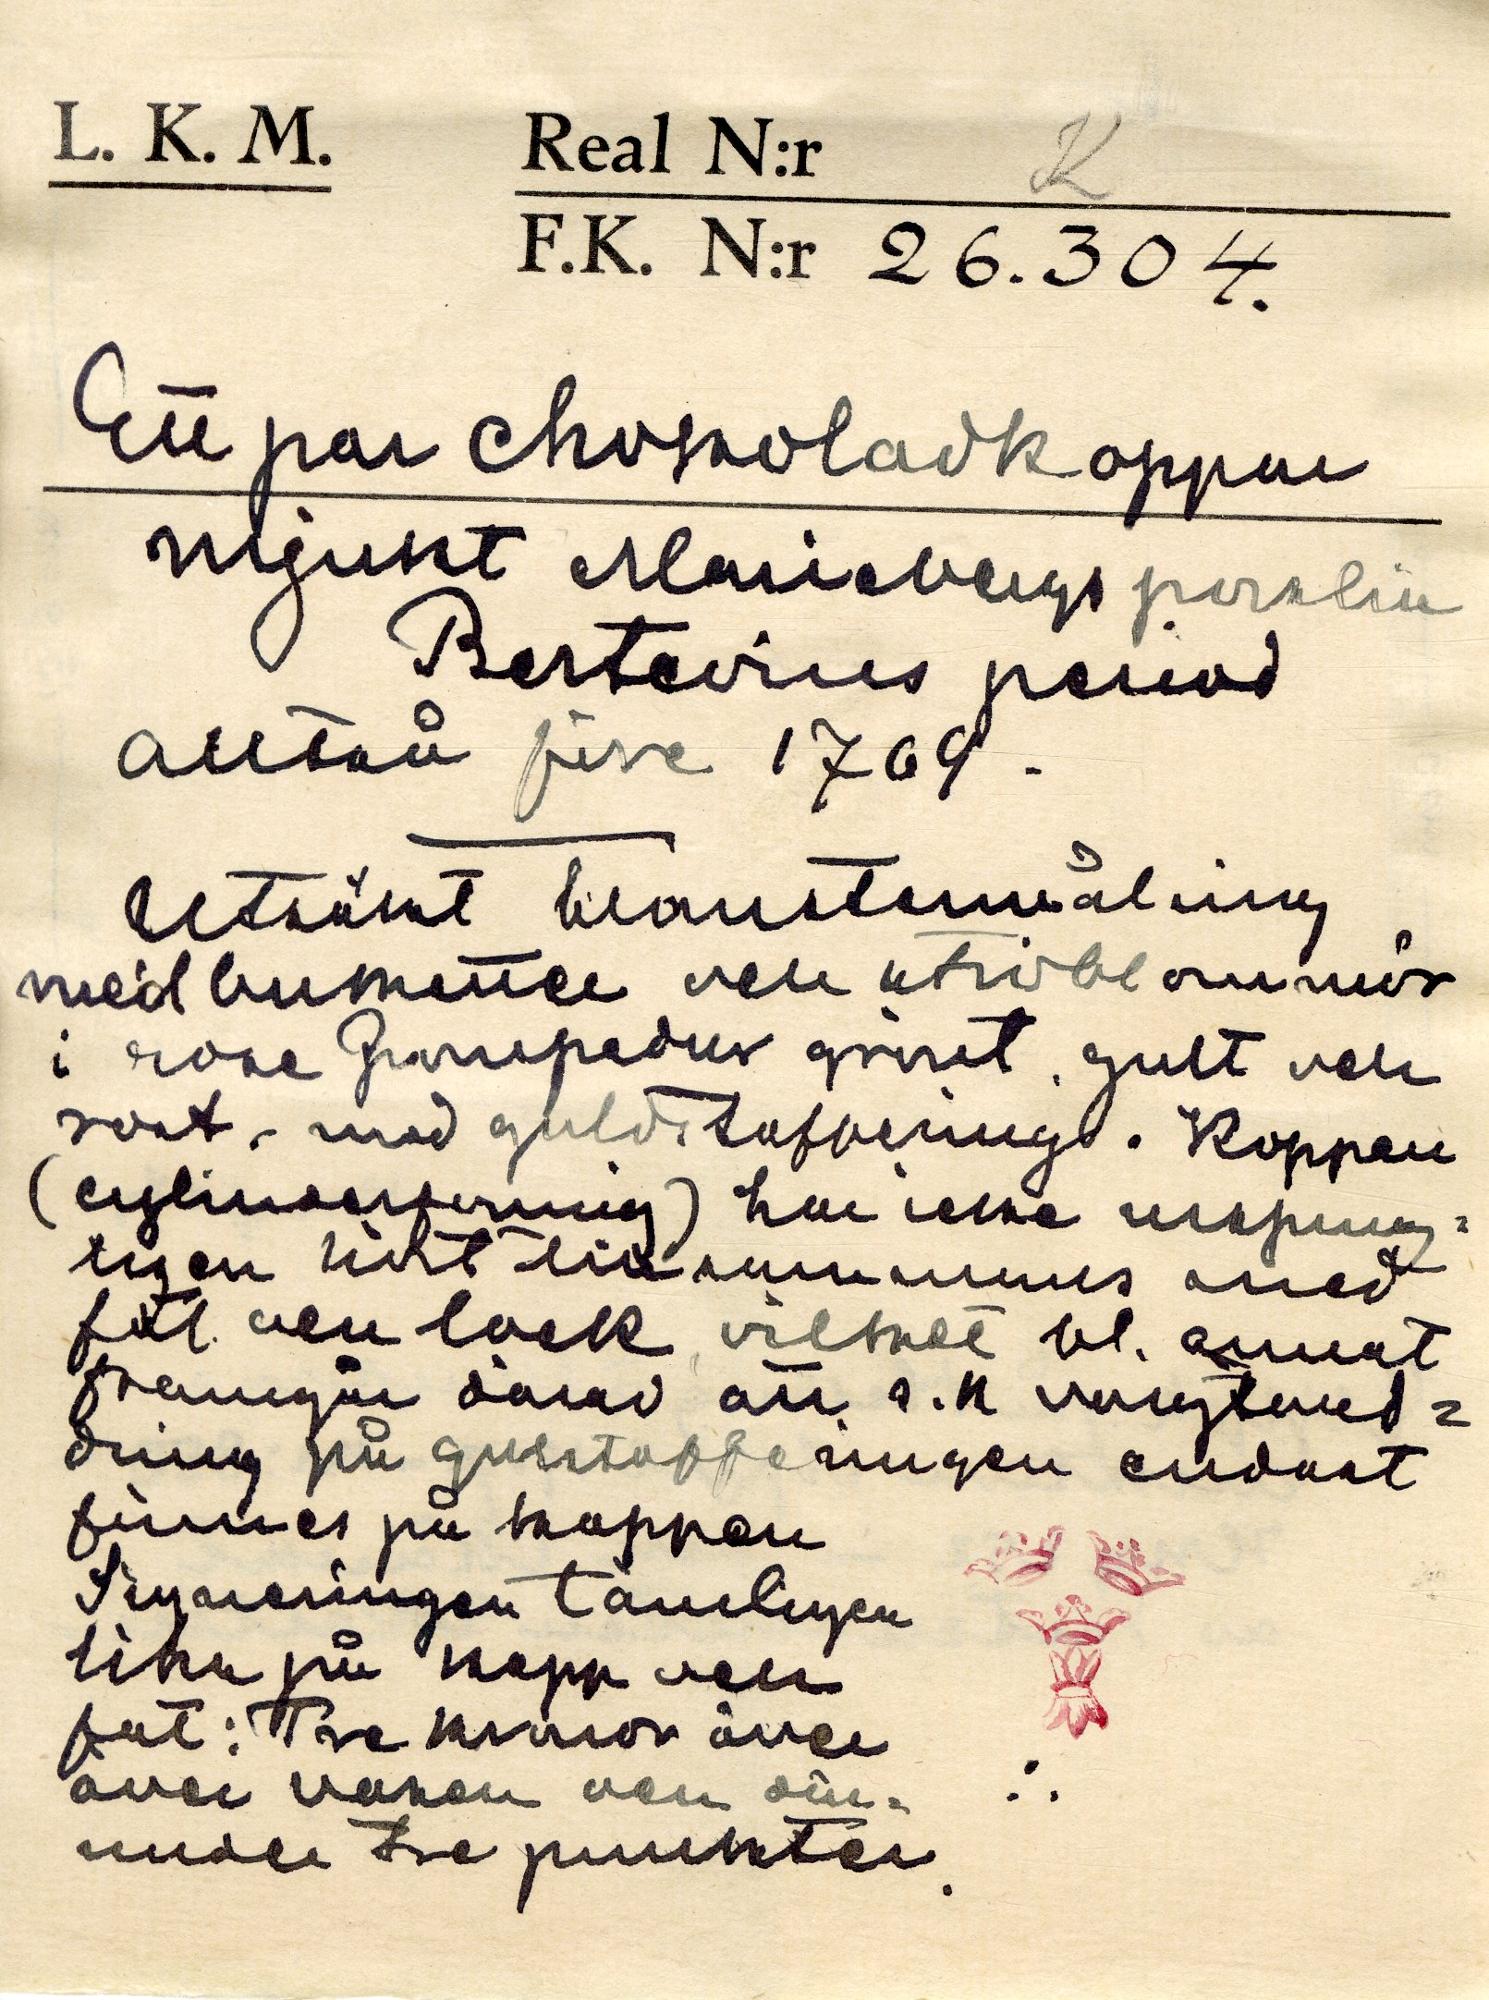 L. K. M.
Real N:r K
F.K. N:r 26.304.
Ett par chokoladkoppar
mjukt Mariebergs porslin
Bertevins period
alltså före 1769.
Utsökt blomstermålning
med buketter och ströblommor
i rose Pompadur grönt, gult och
rost, med guldstaffering. Koppen
(cylinderformig) har icke ursprung=
ligen hört tillsammans med
fat och lock, vilket bl. annat
framgår därav att s.k vargtand=
dring på guldstafferingen endast
finnes på koppen
Signeringen tämligen
lika på kopp och
fat: Tre kronor över
över vasen och där=
under tre punkter.